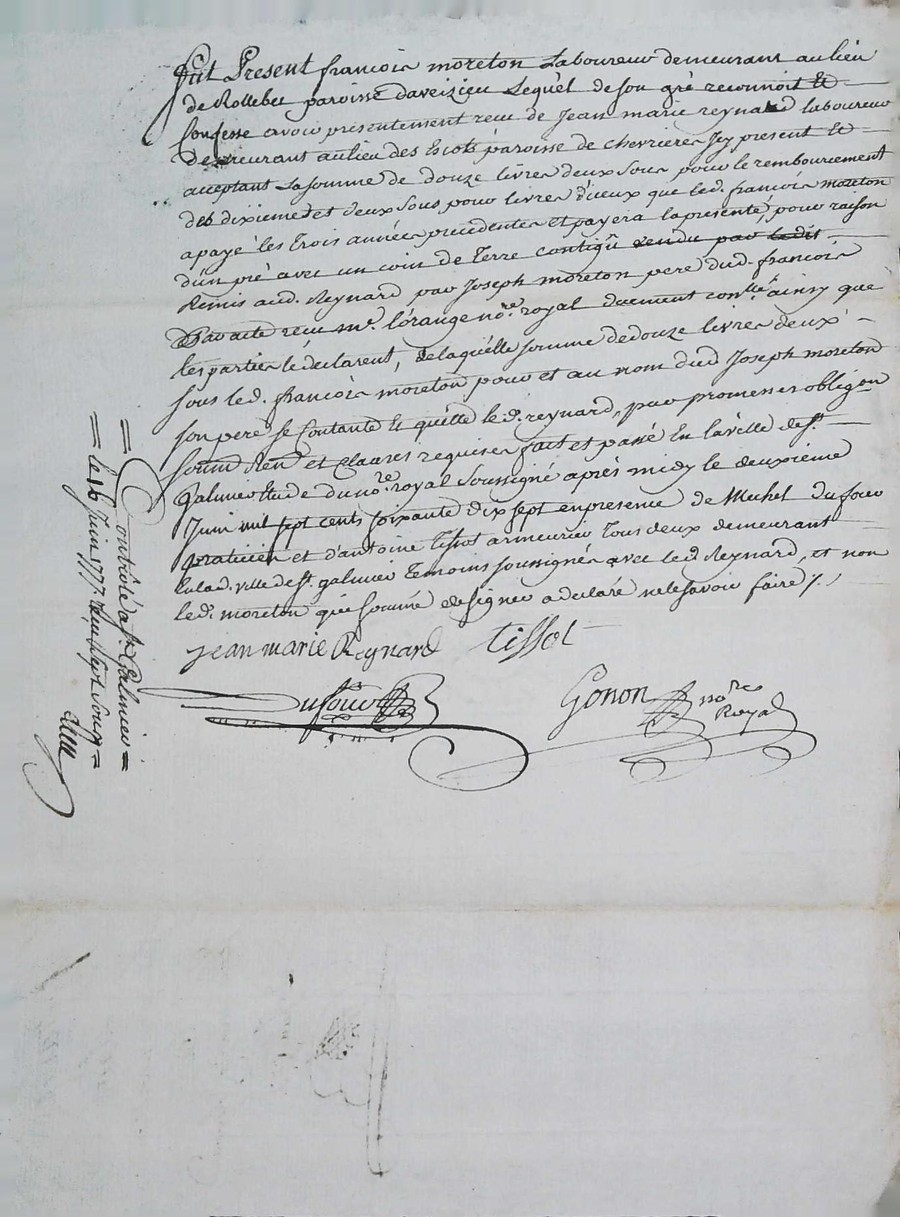 fut Present francois moreton Laboureur demeurant au lieu
de Rollebet paroisse daveizieu Lequel de son gré reconnoit et
Confesse avoir presentement reçu de Jean marie reynard laboureur
demeurant au lieu des Escots paroisse de chevrieres Jcy present et
acceptant La somme de douze livres deux sous pour le remboursement
des dixiemes et deux sous pour livres d'iceux que led. francois moreton
a payé les trois années precedentes et payera la presente, pour raison
d'un pré avec un coin de Terre contigû vendu par ledit
Remis aud. Reynard par Joseph moreton pere dud. francois
Par acte reçu me. l'orange nore. royal duement conllé ainsy que
les parties le declarent, de laquelle somme de douze livres deux
sous led. francois moreton pour et au nom dud Joseph moreton
son pere se Contante et quitte led. reynard, par promesses obligon
soumn Renon et clauses requises fait et passé En la ville de st.
galmier Etude du nore. royal soussigné après midy le deuxieme
Juin mil sept cents soixante dix sept en presence de Michel dufour
praticien et d'antoine tissot armeurier tous deux demeurant
en lad. ville de st. galmier temoins soussignés avec led. Reynard, et non
led. moreton qui sommé de signer a declaré ne le savoir faire /.
jean marie Reynard tissot
Dufour Gonon nore
Royal
Controlé a st. Galmier
le 16 Juin 1777 Reçu sept sous